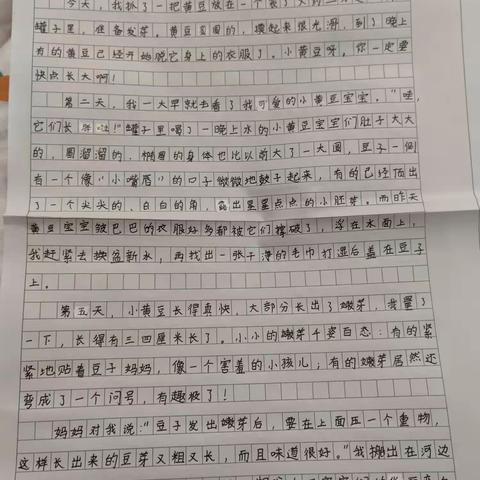 今天,我抓了一把黄豆放在一个装了
罐子里,准备发芽。黄豆圆圆的,摸起来很光滑,到了晚上
有的黄豆已经开始脱它身上的衣服了。小黄豆呀,你一定要
快点长大啊!
第二天,我一大早就去看了我可爱的小黄豆宝宝。"哇,
它们长胖啦!"罐子里喝了一晚上水的小黄豆宝宝们肚子大大
的,圆溜溜的,椭圆的身体也比以前大了一大圈,豆子一侧
有一个像"小嘴唇"的口子微微地鼓了起来,有的已经顶出
了一个尖尖的、白白的角,露出星星点点的小胚芽。而昨天
黄豆宝宝皱巴巴的衣服好多都被它们撑破了,浮在水面上,
我赶紧去换盆新水,再找出一张干净的毛巾打湿后盖在豆子
上。
第五天,小黄豆长得真快,大部分长出了嫩芽,我量了
一下,长得有三四厘米长了。小小的嫩芽千姿百态:有的紧
紧地贴着豆子妈妈,像一个害羞的小孩儿;有的嫩芽居然还
弯成了一个问号,有趣极了!
妈妈对我说:"豆子发出嫩芽后,要在上面压一个重物,
这样长出来的豆芽又粗又长,而且味道很好。"我搬出在河边